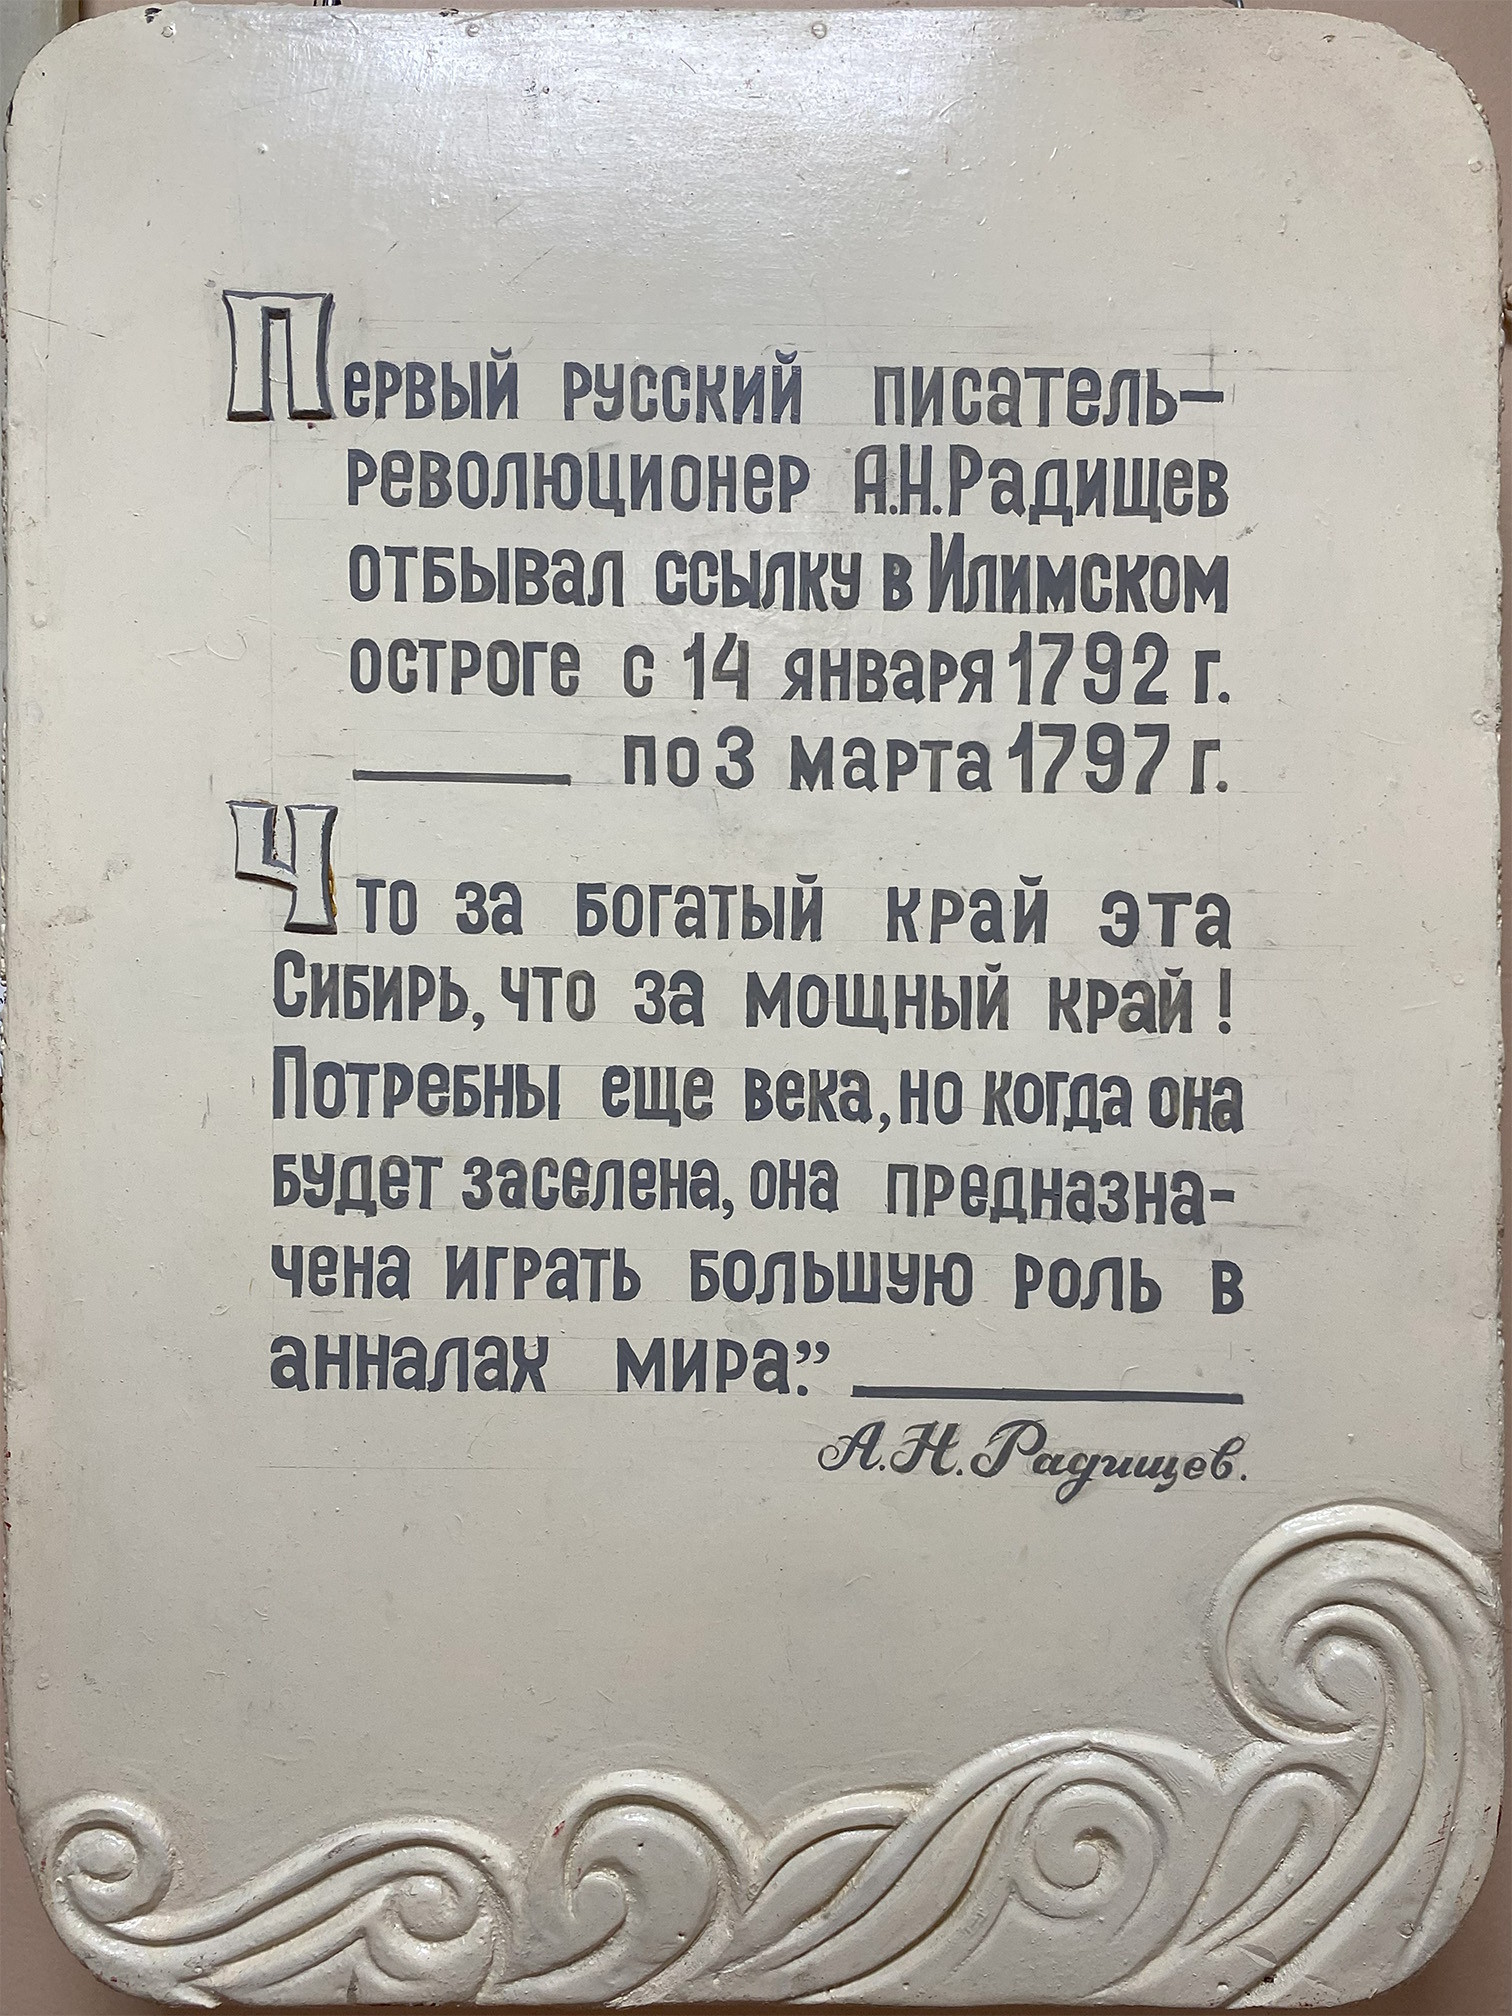 Первый русский писатель–
революционер А.Н.Радищев
отбывал ссылку в Илимском
остроге с 14 января 1792 г.
по 3 марта 1797 г.
Что за богатый край эта
Сибирь, что за мощный край!
Потребны еще века, но когда она
будет заселена, она предназна-
чена играть большую роль в
анналах мира.”
А.Н.Радищев.